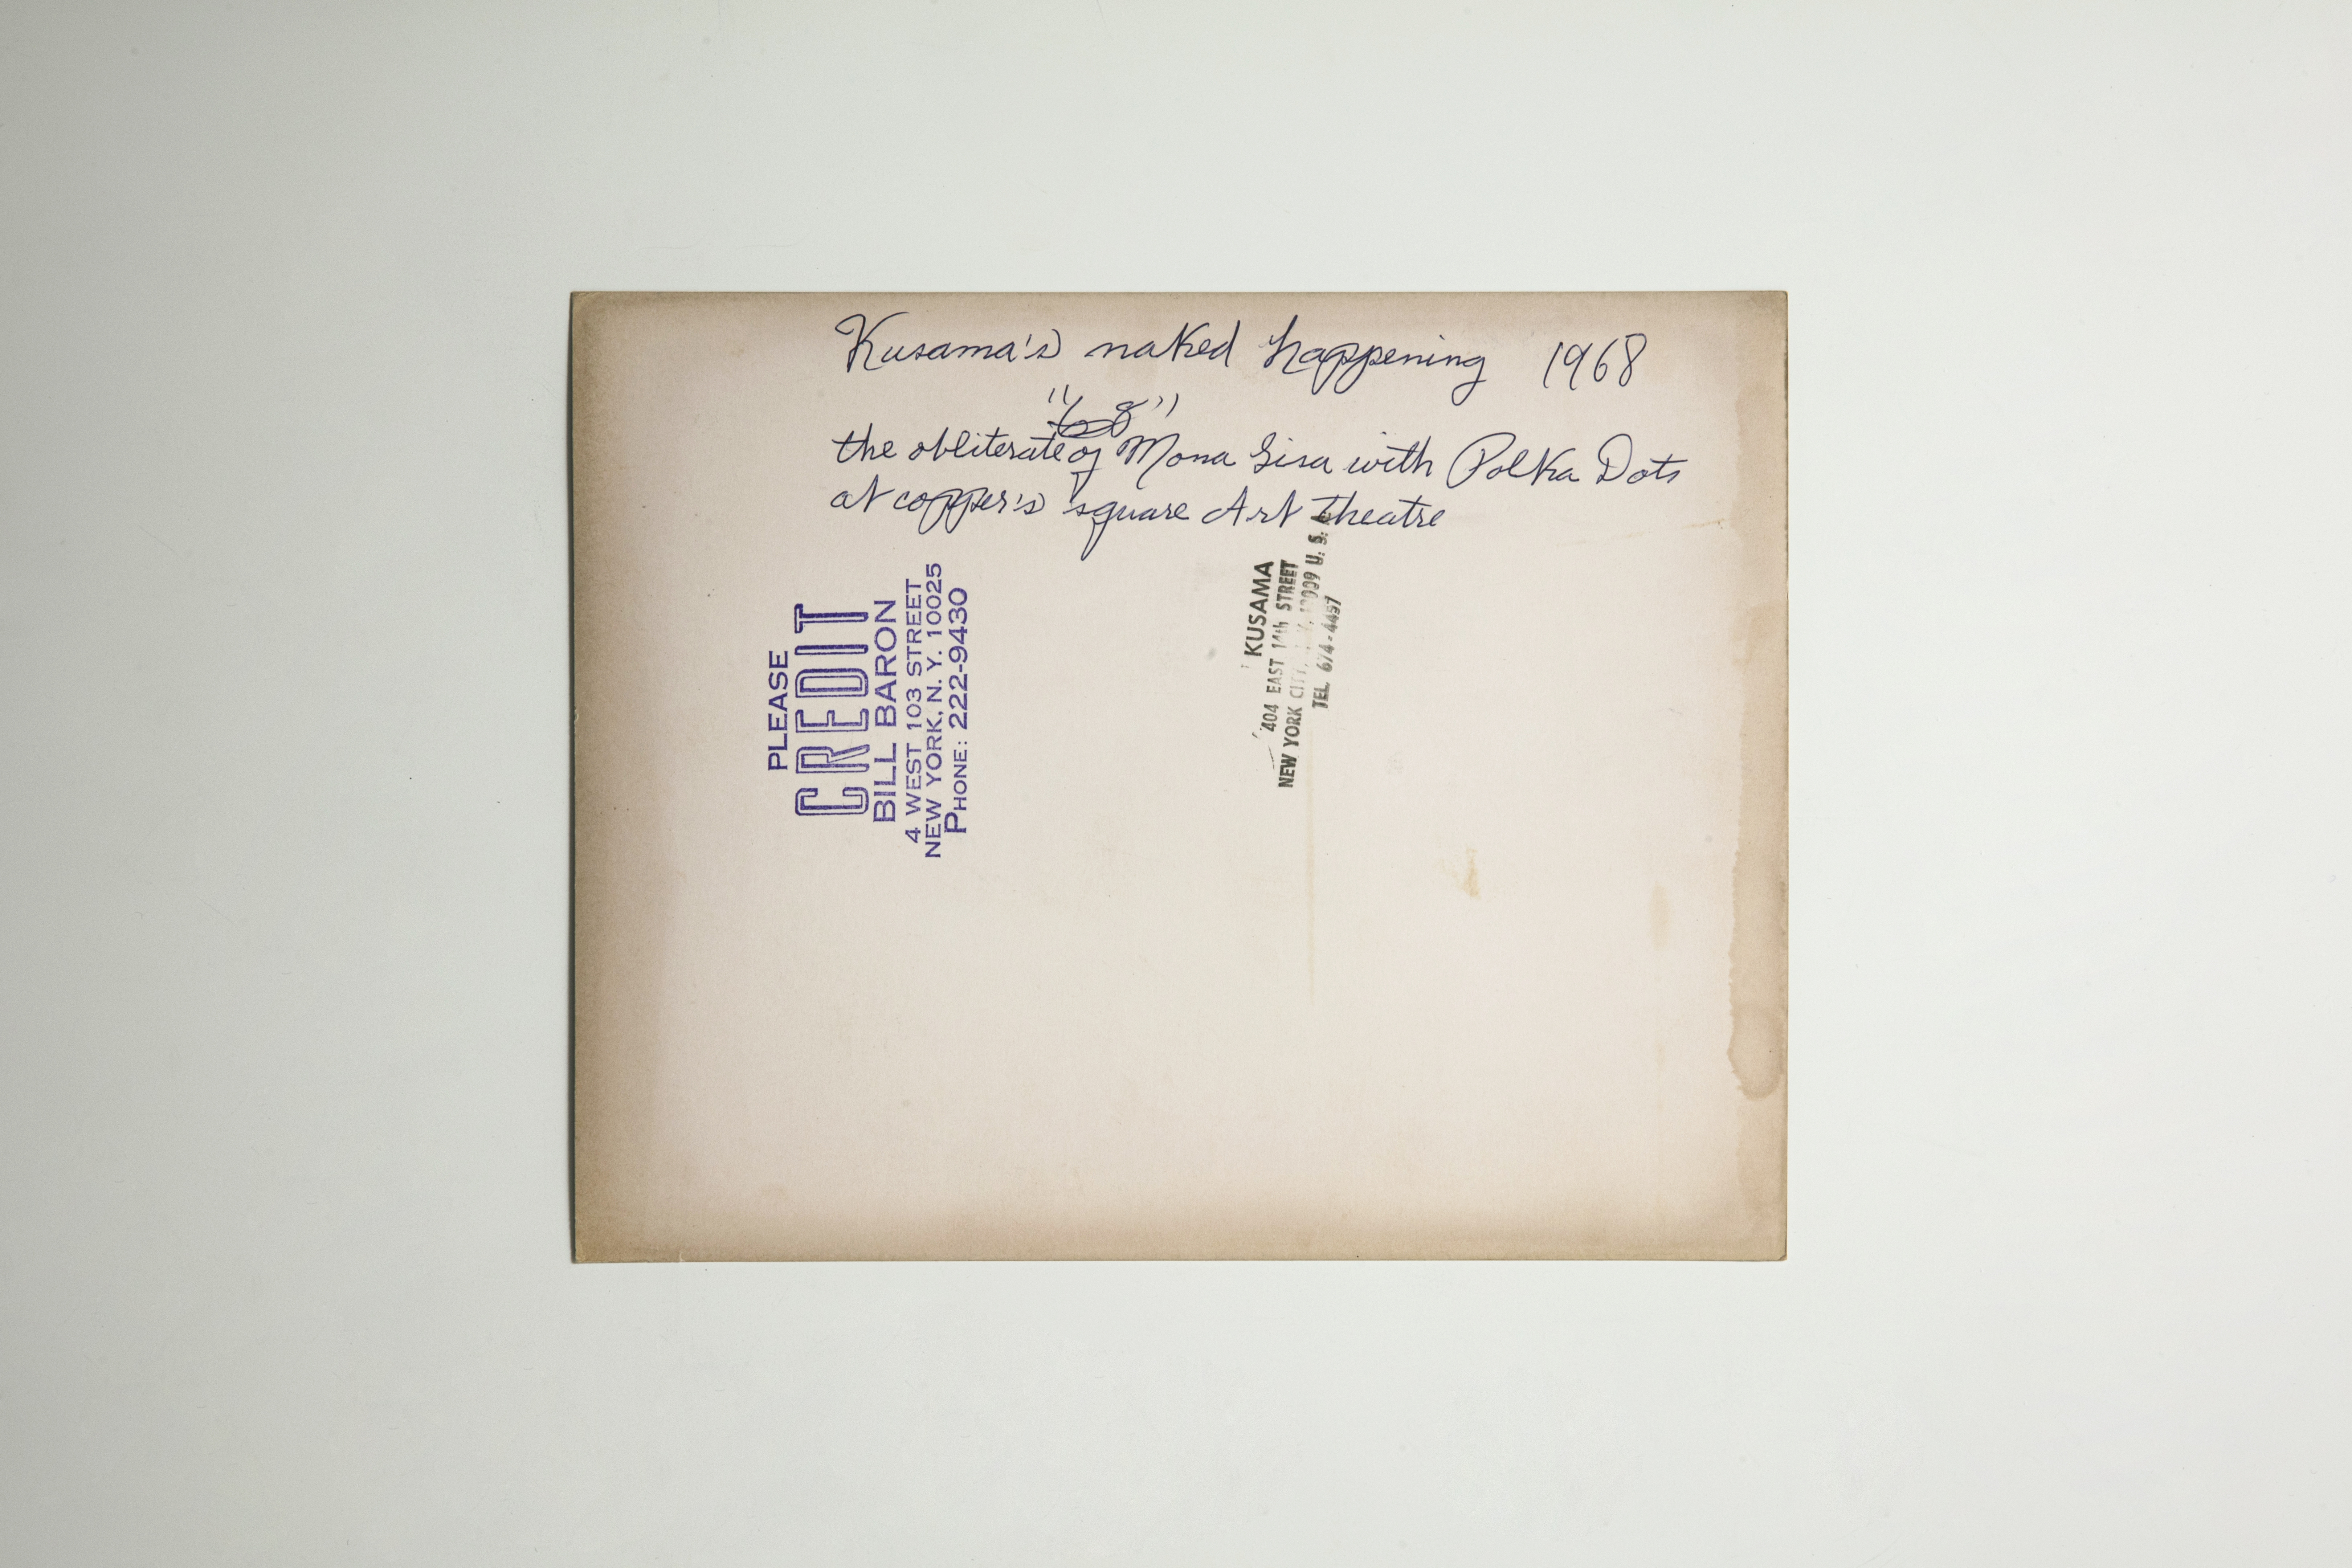 Kusama's naked happening 1968
"68"
the obliterate of Mona Lisa with Polka Dots
at copper's square Art Theatre
PLEASE
CREDIT
BILL BARON
4 WEST 103 STREET
NEW YORK, N. Y. 10025
PHONE: 222-9430
KUSAMA
404 EAST 14th STREET
NEW YORK CITY, 10009 U. S. A.
TEL. 674-4457